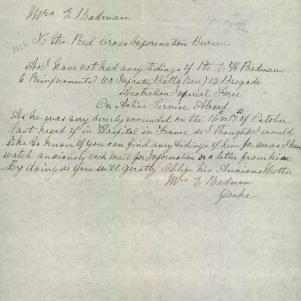 Mrs E Badman
To the Red Cross Information Bureau
As I have not had any tidings of Pte E H Badman
6 Reinforcements 50 Infantry Battalion 12 Brigade
Australian Imperial Force
On Active Service Abroad
As he was very severely wounded on the 16 or 17th of October
last heard of in Hospital in France so I thought I would
like to know if you can find any tidings of him for me as I have
watch anxiously each mail for Information or a letter from him
By doing so you will greatly oblige his Anxious Mother
Mrs E Badman